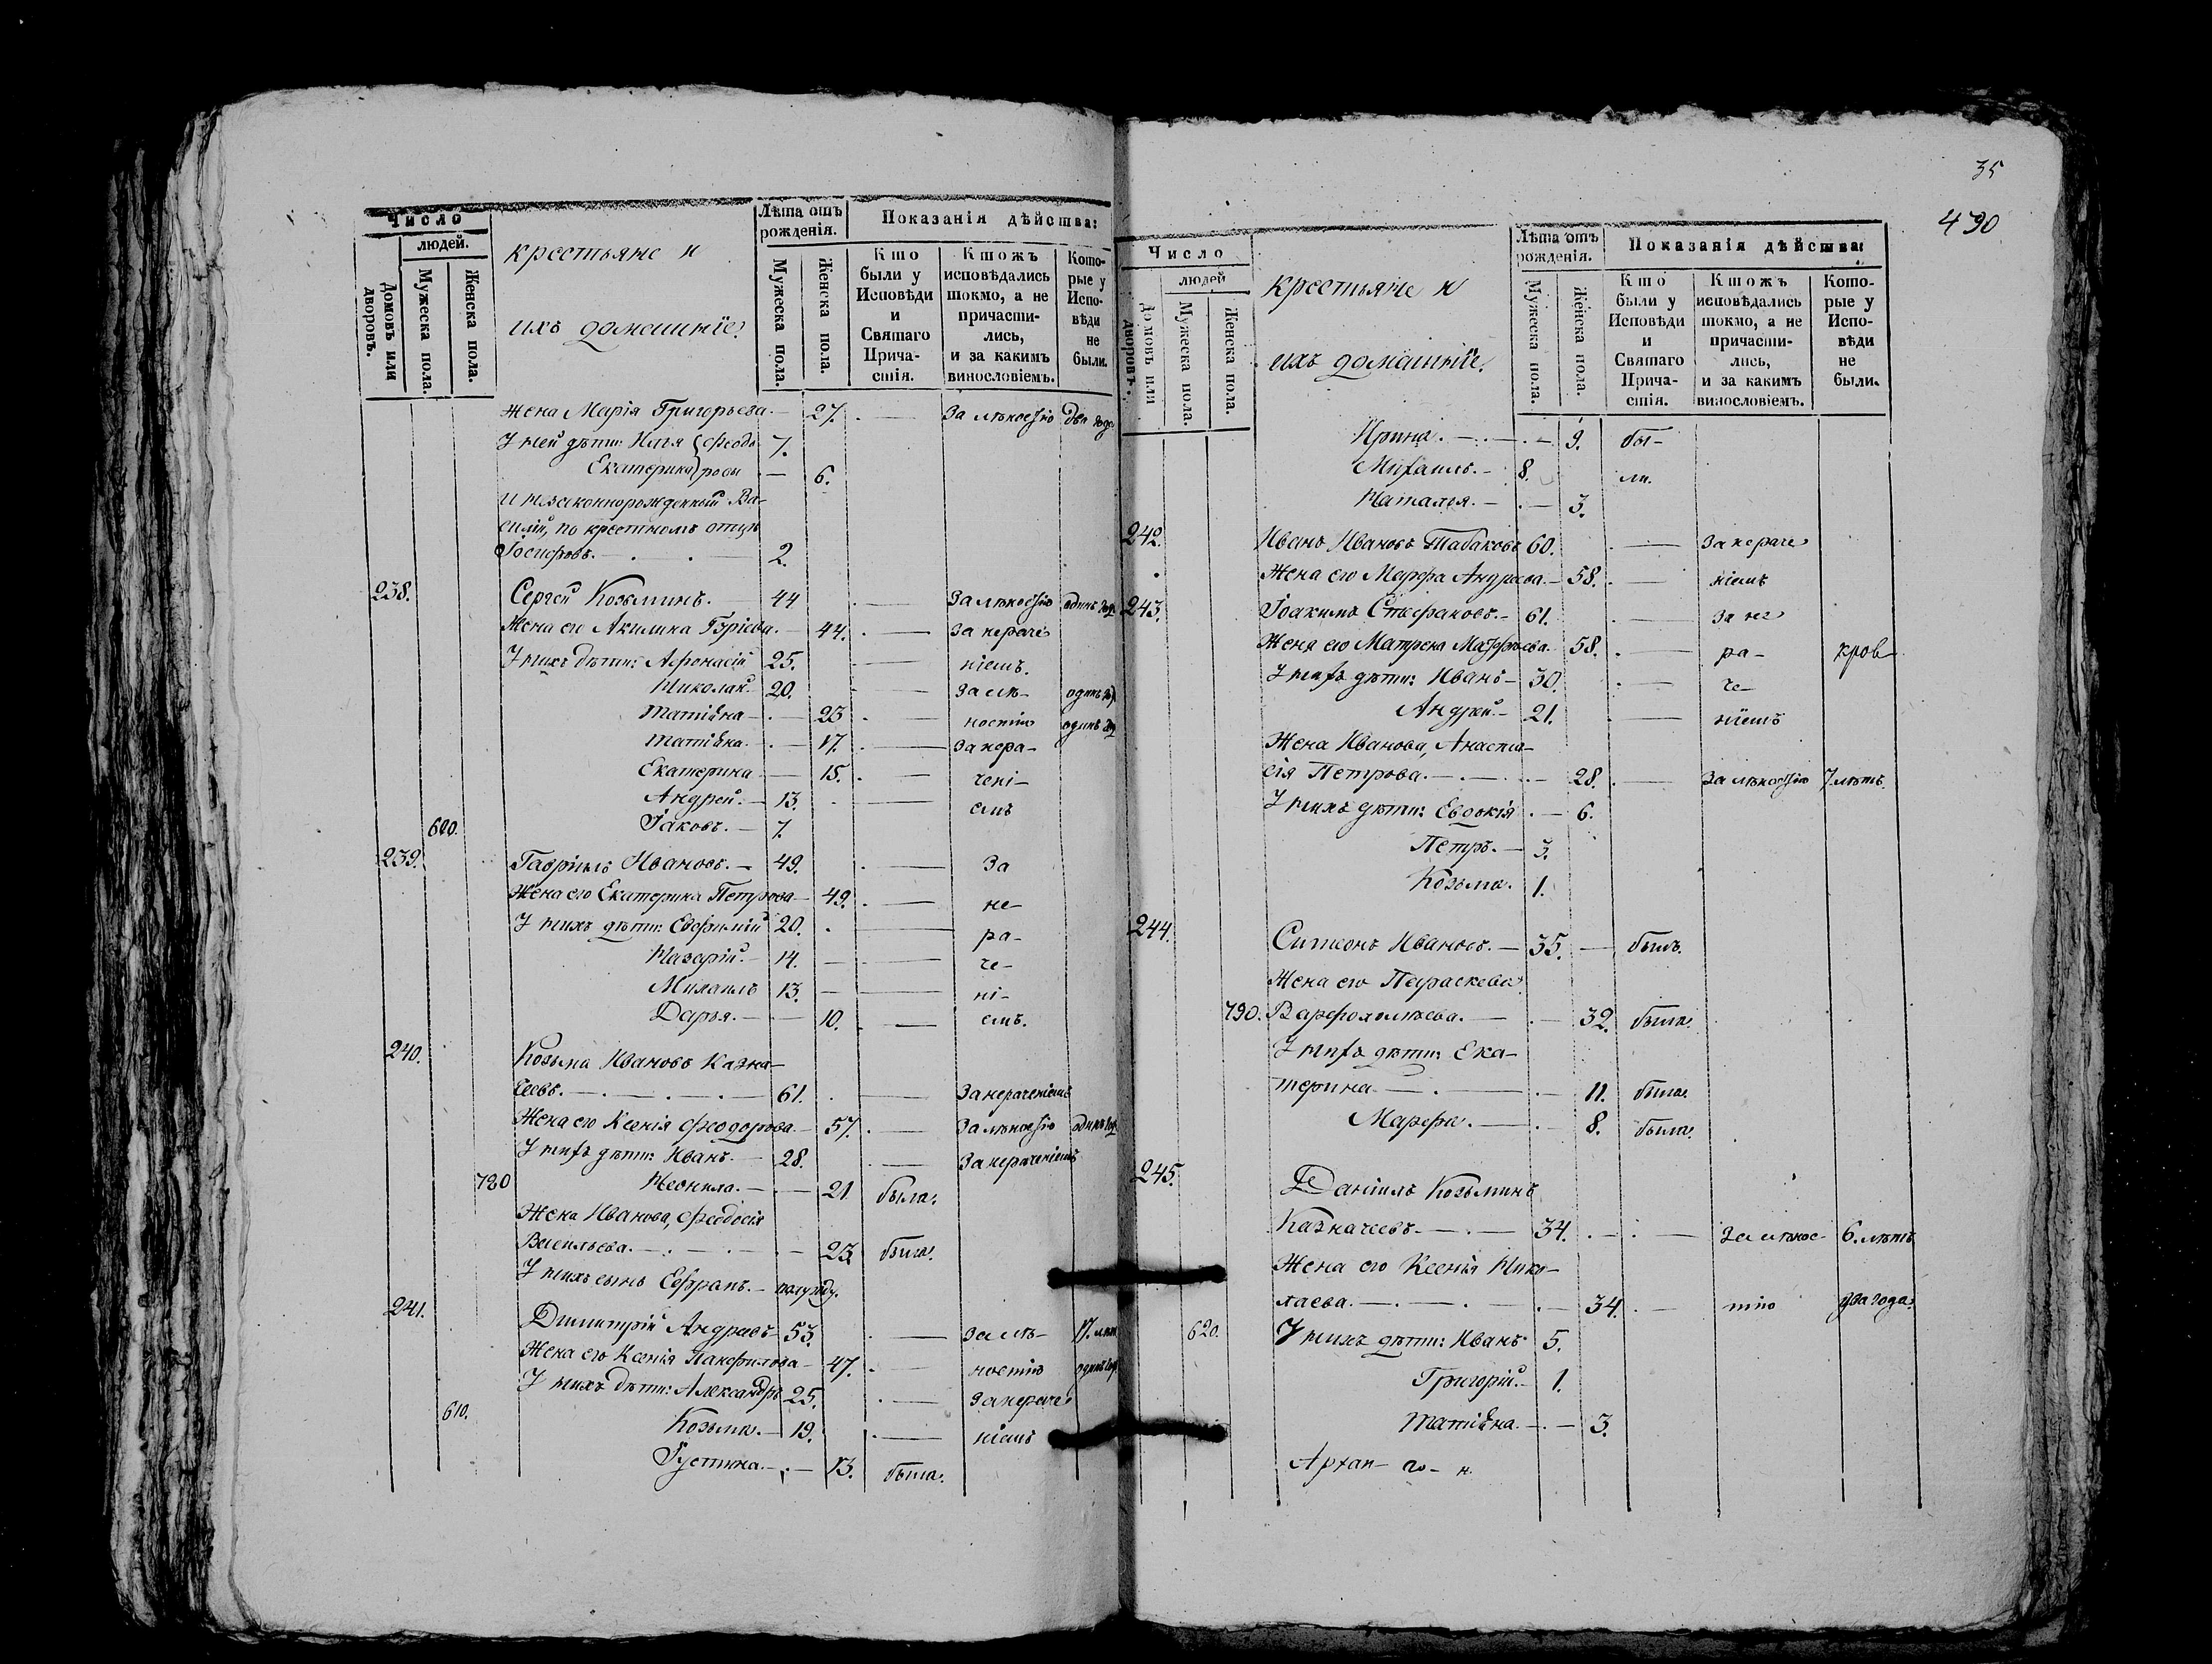 Число
людей.
Домовъ или дворовъ.
Мужеска пола.
Женска пола.
крестьяне и
ихъ домашніе.
Лѣта отъ рожденія.
Мужеска пола.
Женска пола.
Показанія дѣйства:
Кто были у Исповѣди и Святаго Прича-стія.
Ктожъ исповѣдались токмо, а не причасти-лись, и за какимъ винословіемъ.
Кото-рые у Испо-вѣди не были.
Жена Марія Григорьева. — 27. . — За лѣностію два года
У ней дѣти: Илія { Феодо 7.
Екатерина } ровы — 6.
и незаконнорожденный Ва-
силій, по крестномъ отцѣ
Іосифовъ. — . — 2.
238. Сергей Козьминъ. — 44 . — За лѣностію одинъ годъ
Жена его Акилина Гэріева. — 44. . — За нераче
У нихъ дѣти: Афонасій 25. . — ніемъ.
Николай. 20. . — За лѣ- одинъ го.
Татіана — . — 23 . — ностію одинъ год
Татіана. — . — 17. . — За нера-
Екатерина — 15. . — чені-
Андрей. — 13. . — емъ
600. Іаковъ. — 7.
239. Гавріилъ Ивановъ. — 49. . — За
Жена его Екатерина Петрова — 49. . — не-
У нихъ дѣти: Евфимій 20. . — ра-
Назарій. — 14. — — че-
Михаилъ 13. — — ні-
Дарья. — — 10. . — емъ.
240. Козьма Ивановъ Казна-
чеевъ. — . — . — . — 61. . — За нераченіемъ
Жена его Ксенія Феодорова. — 57. . — За лѣностію одинъ год
У нихъ дѣти: Иванъ. — 28. . — За нераченіемъ
780 Неонила. — . — 21 была.
Жена Иванова, Феодосія
Васильева. — . — . — 23 была.
У нихъ сынъ Евграпъ. — полугоду.
241. Димитрій Андреевъ 53 . — За лѣ- 17. лѣт
Жена его Ксенія Панфилова — 47. . — ностію одинъ год
У нихъ дѣти: Александръ 25. . — За нераче
610. Козьма. — 19. . — ніемъ
Іустина. — . — 13. была.
35
490
Число
людей
Домовъ или дворовъ.
Мужеска пола.
Женска пола.
крестьяне и
ихъ домашніе.
Лѣта отъ рожденія.
Мужеска пола.
Женска пола.
Показанія дѣйства:
Кто были у Исповѣди и Святаго Прича-стія.
Ктожъ исповѣдались токмо, а не причасти-лись, и за какимъ винословіемъ.
Кото-рые у Испо-вѣди не были.
Ирина. — . — . — 9. бы-
Михаилъ. — 8. ли.
Наталья. — . — 3.
242. Иванъ Ивановъ Табаковъ 60. . — За нераче
Жена его Марфа Андреева. — 58. . — ніемъ
243. Іоакимъ Стефановъ. — 61. . — За не
Жена его Матрена Матфѣева. 58. . — ра- кров
У нихъ дѣти: Иванъ — 30. . — че-
Андрей — 21. . — ніемъ
Жена Иванова, Анаста-
сія Петрова. — . — . — 28. . — За лѣностію 7 лѣтъ.
У нихъ дѣти: Евдокія . — 6.
Петръ. — 3.
Козьма. 1.
244. Симеонъ Ивановъ. — 35. — былъ.
Жена его Параскева
790. Варфоломѣева. — . — 32. была.
У нихъ дѣти: Ека-
терина — . — . — 11. была.
Марфа. — . — 8. была.
245. Даніилъ Козьминъ
Казначеевъ. — . — 34. . — . — За лѣнос- 6. лѣтъ
Жена его Ксенія Нико-
лаева. — . — . — . — 34. . — тію два года.
620. У нихъ дѣти: Иванъ 5.
Григорій. — 1.
Татіана. — . — 3.
Архан- го- н.